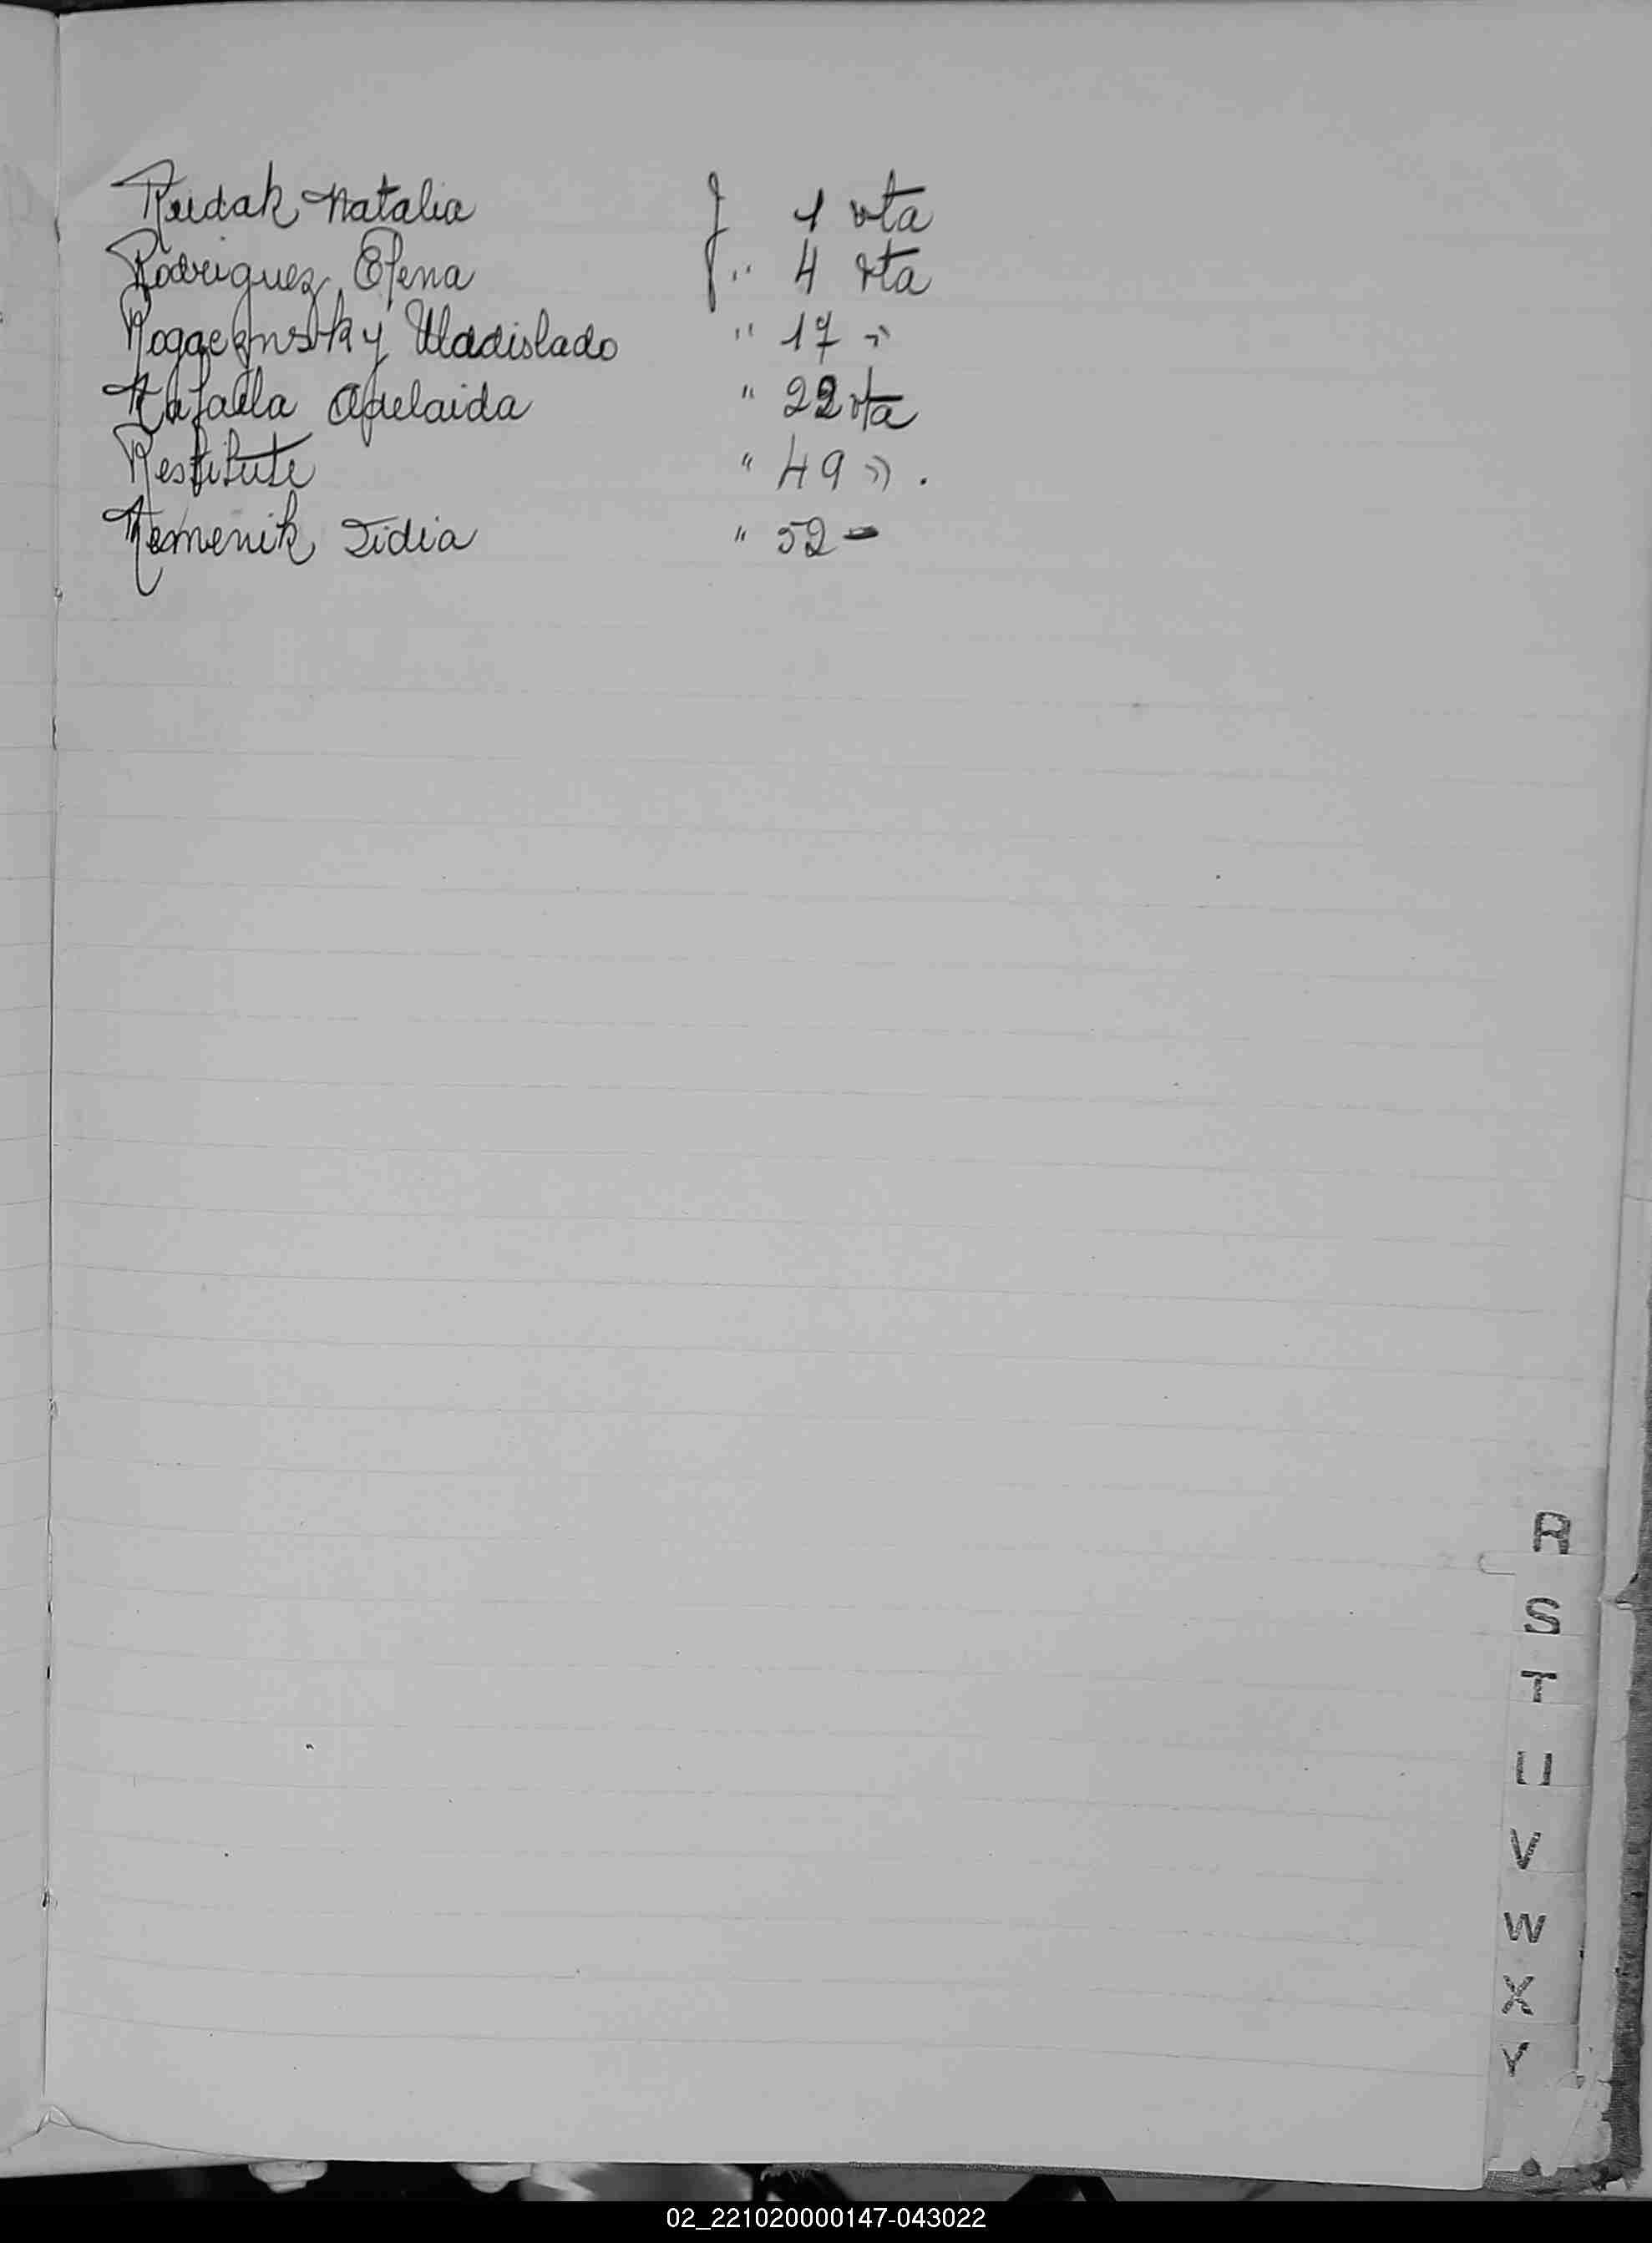 Rudak Natalia f 1 vta
Rodriguez Elena f " 4 vta
Vladislado " 17 "
Rafaela Adelaida " 22 vta
Restitute " 49 " .
Remenik Lidia " 52 -
R
S
T
U
V
W
X
Y
02_221020000147-043022